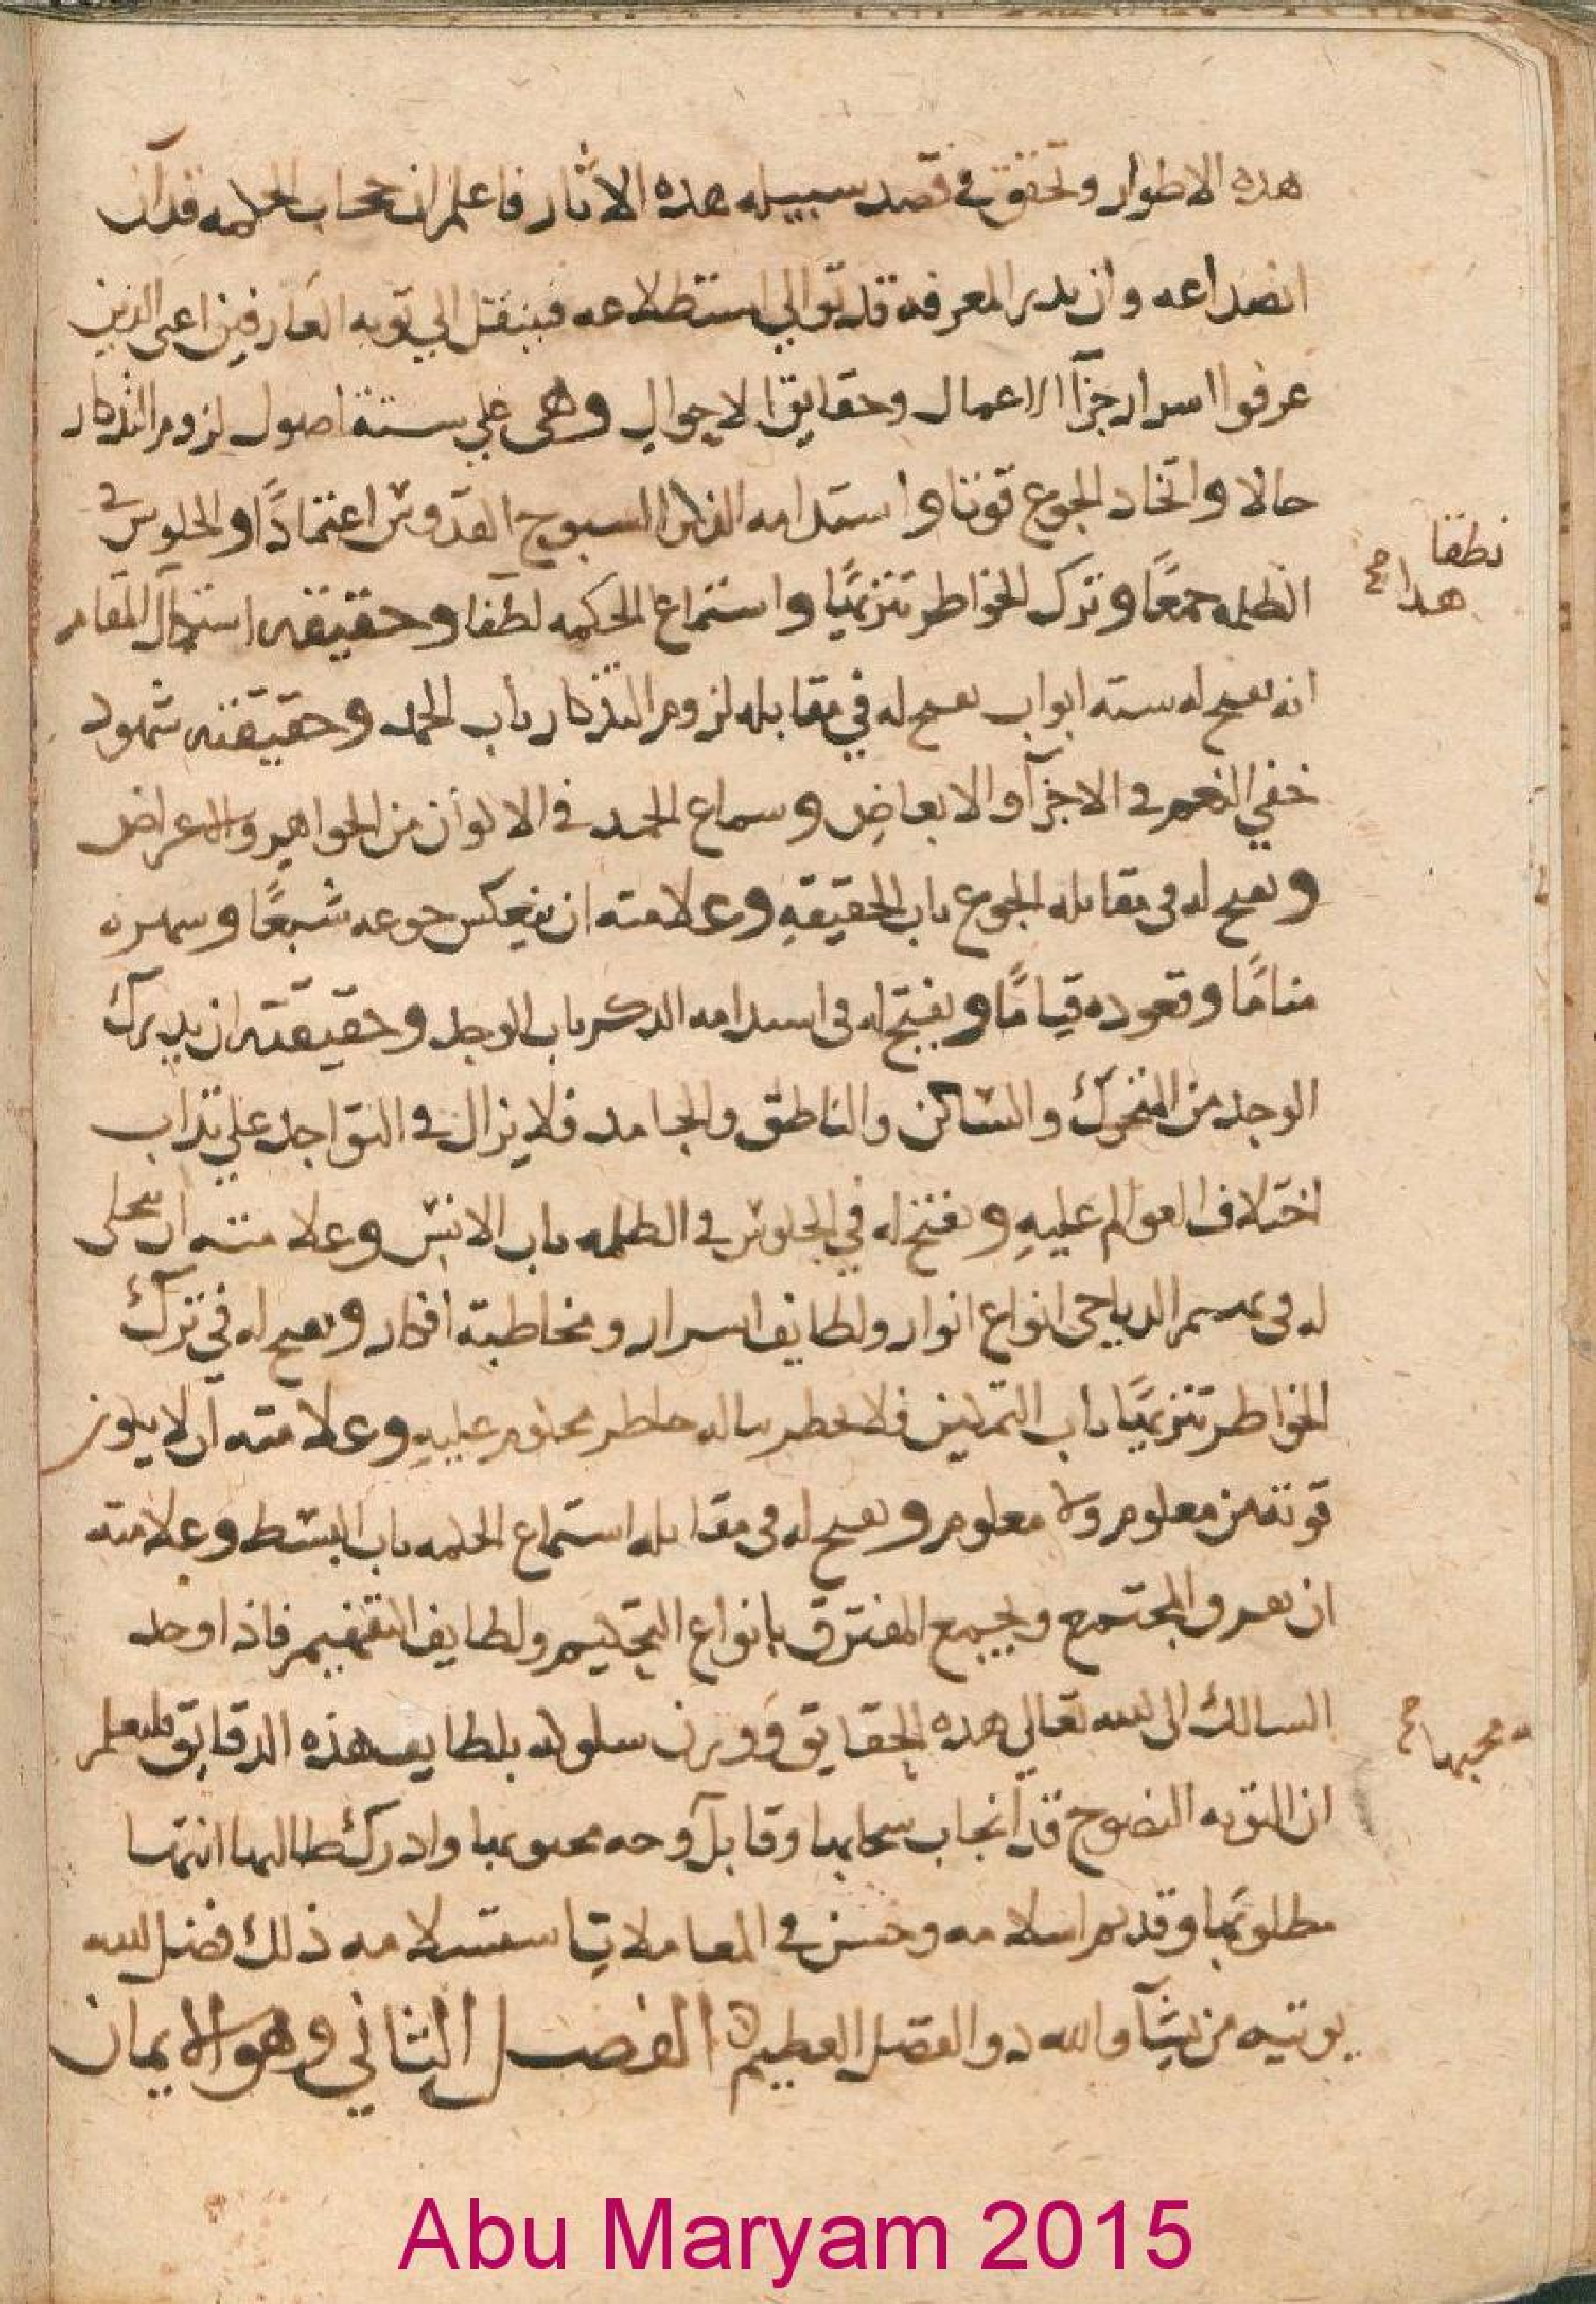 هذه الاطوار وتحقق في قصد سبيله هذه الاثار فاعلم ان حجاب الحكمه قد آن
انصداعه وان بدر المعرفه قد توالي استطلاعه فينتقل الي توبه العارفين اعني الذين
عرفوا اسرار جزآ الاعمال وحقايق الاحوال وهى علي ستة اصول لزوم التذكار
حالا واتخاد الجوع قوتا واستدامه الذكر السبوح القدوس اعتمادًا والجلوس في
الظلمه جمعًا وترك الخواطر تنزيهًا واستماع الحكمه لطفا وحقيقه استكمال المقام
نطقا
هدا
انه يفتح له سته ابواب يفتح له في مقابله لزوم التذكار باب الحمد وحقيقته شهود
خفي النعم في الاجزآ والابعاض وسماع الحمد في الاكوان من الجواهر والاعراض
ويفتح له فى مقابله الجوع باب الحقيقه وعلامته ان ينعكس جوعه شبعًا وسهره
منامًا وقعوده قيامًا ويفتح له فى استدامه الدكر باب الوجد وحقيقته ان يدرك
الوجد من المتحرك والساكن والناطق والجامد فلا يزال في التواجد علي
اختلاف العوالم عليه ويفتح له في الجلوس في الظلمه باب الانس وعلامته ان تتجلى
له فى الدياجى انواع انوار ولطايف اسرار ومخاطبة افكار ويفتح له في ترك
الخواطر تنزيهًا باب التمكين فلا يخطر بباله خاطر محكوم عليه وعلامته ان لا يكون
قوته من معلوم ولا معلوم ويفتح له فى مقابله استماع الحكمه باب البسط وعلامته
ان يفرق المجتمع ويجمع المفترق بانواع التحكيم ولطايف التفهيم فاذا وجد
السالك الى الله تعالي هذه الحقايق ووزن سلوكه بلطايف هذه الدقايق فليعلم
ان التوبه النصوح قد انجاب سحابها وقابل وجه محبوبها وادرك طالبها انتها
مطلوبها وقديم اسلامه وحسن في المعاملات استسلامه ذلك فضل الله
يوتيه من يشآ والله دو الفضل العظيم الفصل الثاني وهو الايمان
Abu Maryam 2015